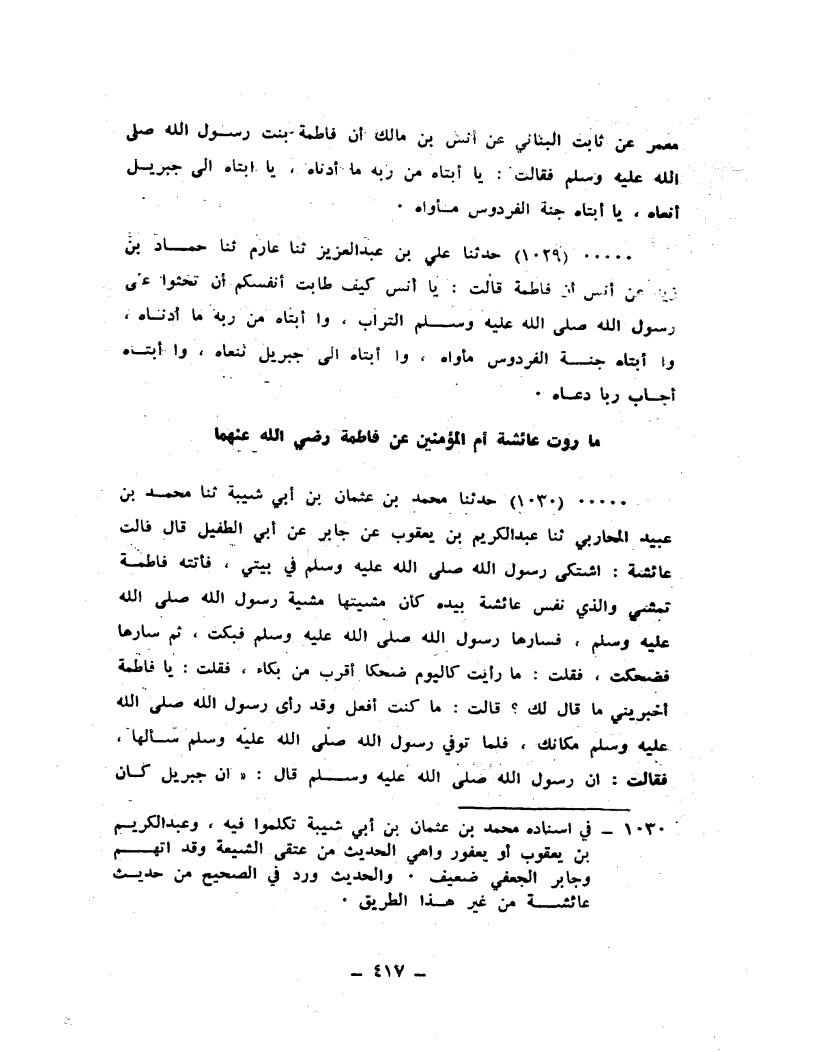 معمر عن ثابت البناني عن أنس بن مالك أن فاطمة بنت رســول الله صلى
الله عليه وسلم فقالت : يا أبتاه من ربه ما أدناه ، يا ابتاه الى جبريــل
أنعاه ، يا أبتاه جنة الفردوس مــأواه ٠
٠٠٠٠٠ (١٠٢٩) حدثنا علي بن عبدالعزيز ثنا عارم ثنا حمــاد بن
زيد عن أنس أن فاطمة قالت : يا أنس كيف طابت أنفسكم أن تحثوا على
رسول الله صلى الله عليه وســـلم التراب ، وا أبتاه من ربه ما أدنــاه ،
وا أبتاه جنـــة الفردوس مأواه ، وا أبتاه الى جبريل ننعاه ، وا أبتــاه
أجــاب ربا دعــاه ٠
ما روت عائشة أم المؤمنين عن فاطمة رضي الله عنهما
٠٠٠٠٠ (١٠٣٠) حدثنا محمد بن عثمان بن أبي شيبة ثنا محمــد بن
عبيد المحاربي ثنا عبدالكريم بن يعقوب عن جابر عن أبي الطفيل قال قالت
عائشة : اشتكى رسول الله صلى الله عليه وسلم في بيتي ، فأتته فاطمــة
تمشي والذي نفس عائشة بيده كأن مشيتها مشية رسول الله صلى الله
عليه وسلم ، فسارها رسول الله صلى الله عليه وسلم فبكت ، ثم سارها
فضحكت ، فقلت : ما رأيت كاليوم ضحكا أقرب من بكاء ، فقلت : يا فاطمة
أخبريني ما قال لك ؟ قالت : ما كنت أفعل وقد رأى رسول الله صلى الله
عليه وسلم مكانك ، فلما توفي رسول الله صلى الله عليه وسلم ســألها ،
فقالت : ان رسول الله صلى الله عليه وســـلم قال : « ان جبريل كــان
١٠٣٠ ــ في اسناده محمد بن عثمان بن أبي شيبة تكلموا فيه ، وعبدالكريــم
بن يعقوب أو يعفور واهي الحديث من عتقى الشيعة وقد اتهـــم
وجابر الجعفي ضعيف ٠ والحديث ورد في الصحيح من حديــث
عائشـــة من غير هــذا الطريق ٠
ــ ٤١٧ ــ